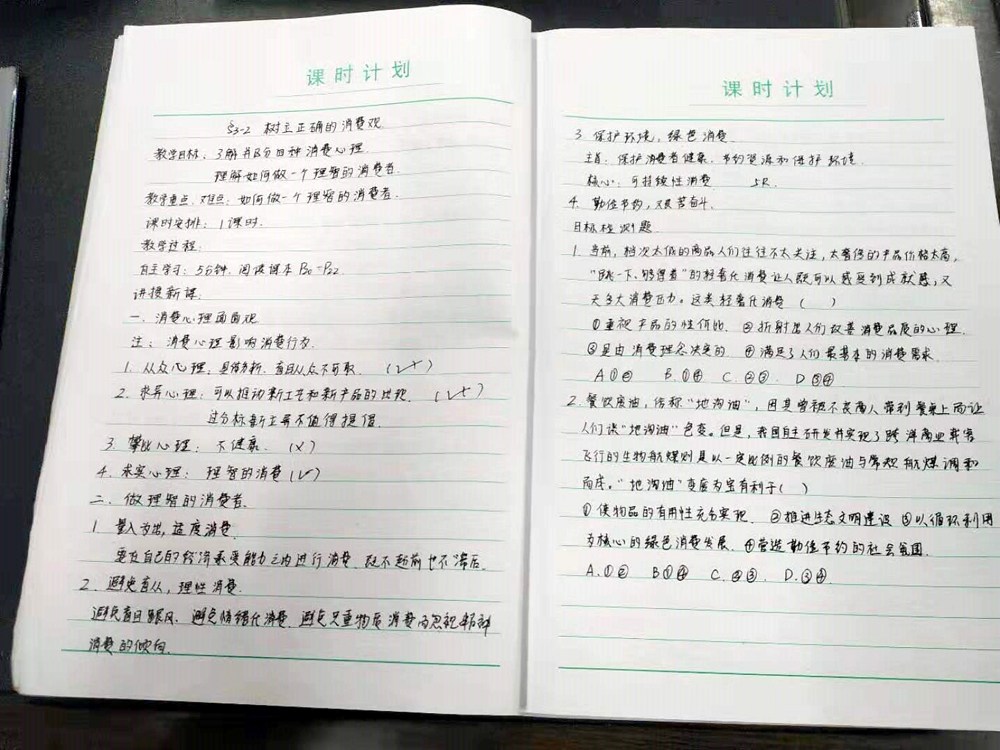 课时计划
§3-2 树立正确的消费观
教学目标: 了解并区分四种消费心理.
理解如何做一个理智的消费者.
教学重点、难点: 如何做一个理智的消费者.
课时安排: 1课时.
教学过程:
自主学习: 5分钟. 阅读课本P20-P22
讲授新课:
一. 消费心理面面观
注: 消费心理影响消费行为.
1. 从众心理: 具体分析. 盲目从众不可取. (√×)
2. 求异心理: 可以推动新工艺和新产品的出现. (√×)
过分标新立异不值得提倡.
3 攀比心理: 不健康. (×)
4. 求实心理: 理智的消费(√)
二. 做理智的消费者.
1. 量入为出, 适度消费.
要在自己的经济承受能力之内进行消费. 既不超前也不滞后.
2. 避免盲从, 理性消费.
避免盲目跟风. 避免情绪化消费. 避免只重物质消费而忽视精神
消费的倾向.
课时计划
3 保护环境, 绿色消费.
主旨: 保护消费者健康, 节约资源和保护环境.
核心: 可持续性消费 5R.
4. 勤俭节约, 艰苦奋斗.
目标检测题
1. 当前, 档次太低的商品人们往往不太关注, 太奢侈的产品价格太高,
“跳一下、够得着”的轻奢化消费让人既可以感受到成就感, 又
无多大消费压力。这类轻奢化消费 ( )
①重视产品的性价比. ②折射出人们改善消费品质的心理.
③是由消费理念决定的 ④满足了人们最基本的消费需求.
A①② B.①④ C.②③. D③④.
2. 餐饮废油, 俗称“地沟油”, 因其曾被不良商人带到餐桌上而让
人们谈“地沟油”色变。但是, 我国自主研发并实现了跨洋商业载客
飞行的生物航煤则是以一定比例的餐饮废油与常规航煤调和
而成。“地沟油”变废为宝有利于( )
①使物品的有用性充分实现. ②推进生态文明建设 ③以循环利用
为核心的绿色消费发展. ④营造勤俭节约的社会氛围.
A.①② B①④ C.②③. D.③④.